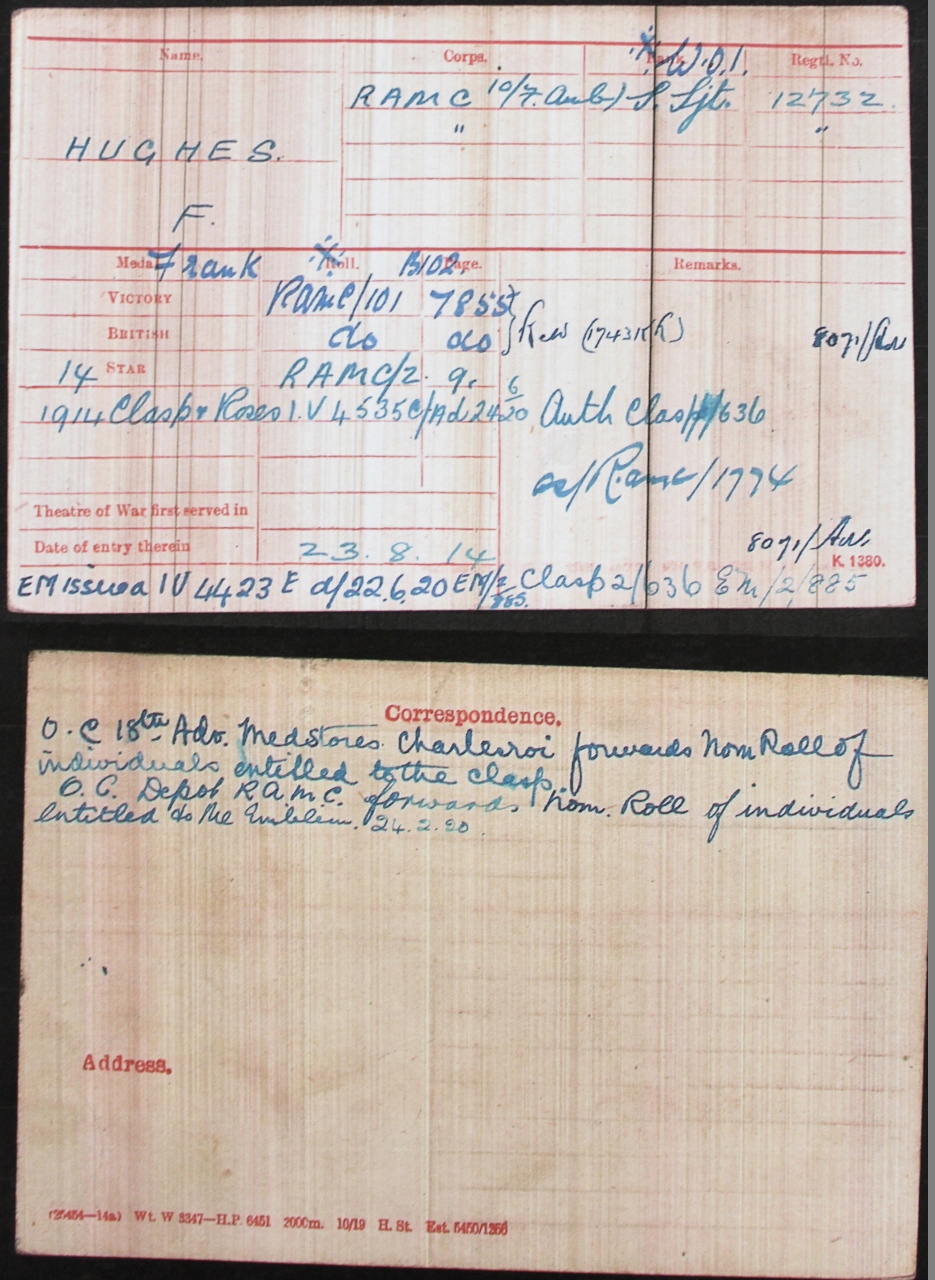 Name. Corps. Rank. Regtl. No.
W.O.I.
RAMC 10/7. Amb) S. Sjt. 12732.
" "
HUGHES.
F.
Frank
Medal. Roll. B102. Page. Remarks.
VICTORY RAMC/101 7855
BRITISH do do (1743KR) 8071/Adv
14 STAR RAMC/2. 9.
1914 Clasp & Roses I.V 4535E/Ad 24 6/20 Auth Clasp/636
as/R.amc/1774
Theatre of War first served in
8071/Adv.
Date of entry therein 23. 8. 14
K. 1380.
EM issued IV 4423 E d/22.6.20 EM/2/885. Clasp 2/636 Em/2/885
Correspondence.
O.C 18th Adv. Medstores. Charleroi forwards Nom Roll of
individuals entitled to the clasp.
O.C. Depot R.A.M.C. forwards Nom. Roll of individuals
entitled to the Emblem. 24.2.20.
Address.
(25454—14a) Wt. W 3347—H.P. 6451 2000m. 10/19 H. St. Est. 5450/1256